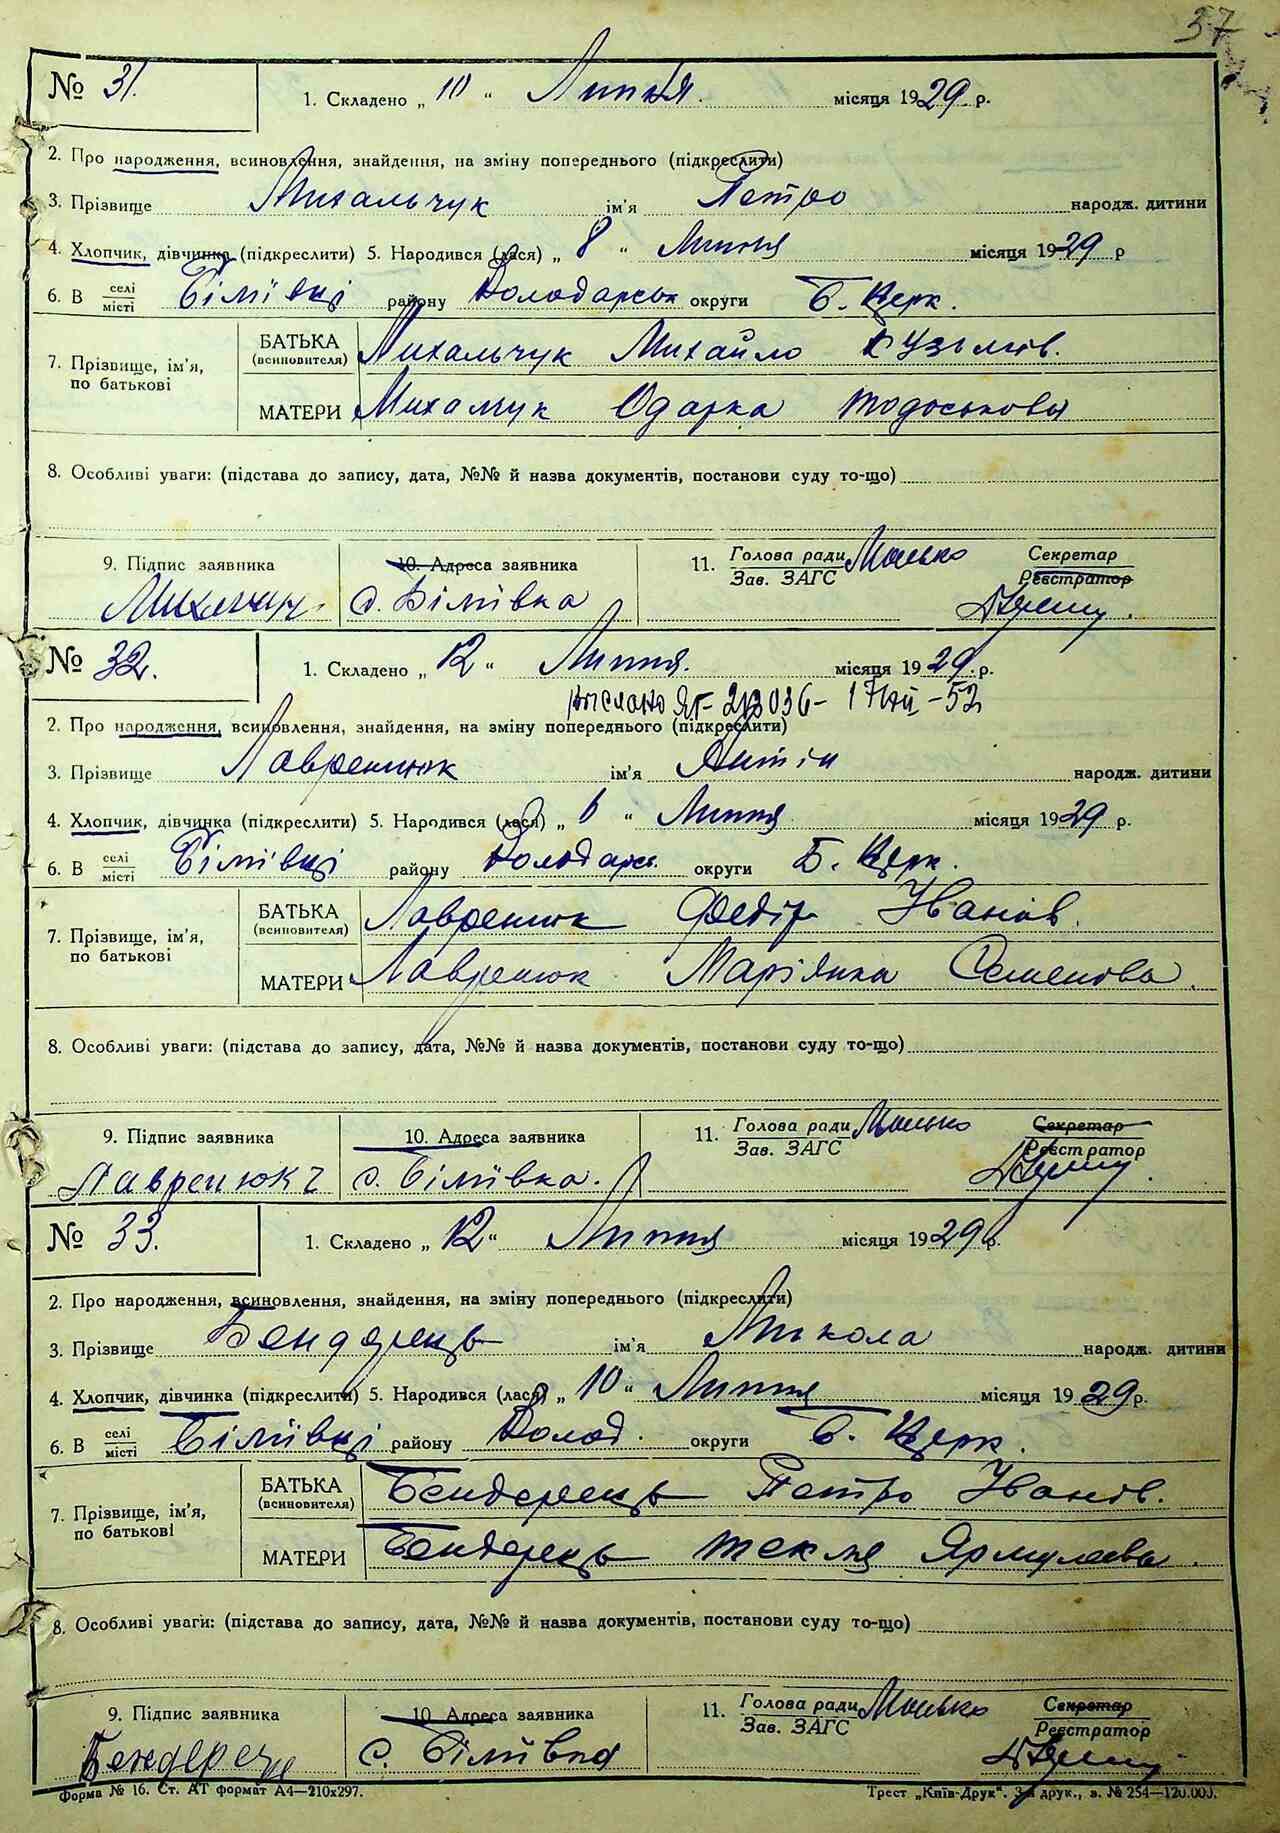 37
№ 31. 1. Складено „ 10 “ Липня. місяця 1929 р.
2. Про народження, всиновлення, знайдення, на зміну попереднього (підкреслити)
3. Прізвище Михальчук ім'я Петро народж. дитини
4. Хлопчик, дівчинка (підкреслити) 5. Народився (лася) „ 8 “ Липня місяця 1929 р
6. В селі місті Біліївці району Володарськ округи Б. Церк.
7. Прізвище, ім'я, по батькові
БАТЬКА (всиновителя) Михальчук Михайло Кузьмів.
МАТЕРИ Михалчук Одарка Тодоськова
8. Особливі уваги: (підстава до запису, дата, №№ й назва документів, постанови суду то-що)
9. Підпис заявника 10. Адреса заявника 11. Голова ради Зав. ЗАГС Секретар Реєстратор
с. Біліївка
№ 32. 1. Складено „ 12 “ Липня. місяця 1929. р.
выслано ЯГ-213036- 17
-52
2. Про народження, всиновлення, знайдення, на зміну попереднього (підкреслити)
3. Прізвище Лавренюк ім'я Антін народж. дитини
4. Хлопчик, дівчинка (підкреслити) 5. Народився (лася) „ 6 “ Липня місяця 1929 р.
6. В селі місті Біліївці району Володарс. округи Б. Церк.
7. Прізвище, ім'я, по батькові
БАТЬКА (всиновителя) Лавренюк Федір Іванов.
МАТЕРИ Лавренюк Маріянка Семенова.
8. Особливі уваги: (підстава до запису, дата, №№ й назва документів, постанови суду то-що)
9. Підпис заявника 10. Адреса заявника 11. Голова ради Зав. ЗАГС Секретар Реєстратор
Лавренюк с. Біліївка.
№ 33. 1. Складено „ 12 “ Липня місяця 1929 р.
2. Про народження, всиновлення, знайдення, на зміну попереднього (підкреслити)
3. Прізвище Бендерець ім'я Микола народж. дитини
4. Хлопчик, дівчинка (підкреслити) 5. Народився (лася) „ 10 “ Липня місяця 1929 р.
6. В селі місті Біліївці району Волод. округи Б. Церк.
7. Прізвище, ім'я, по батькові
БАТЬКА (всиновителя) Бендерець Петро Іванів.
МАТЕРИ Бендерець Текля
8. Особливі уваги: (підстава до запису, дата, №№ й назва документів, постанови суду то-що)
9. Підпис заявника 10. Адреса заявника 11. Голова ради Зав. ЗАГС Секретар Реєстратор
с. Біліївка
Форма № 16. Ст. АТ формат А4—210x297. Трест „Київ-Друк“. 3-я друк., в. № 254—120.000.